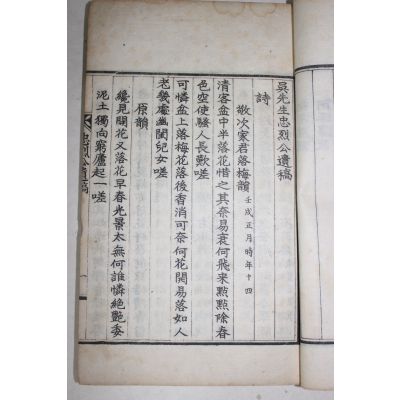 吳先生忠烈公遺稿
詩
敬次家君落梅韻 壬戌正月時年十四
清客盆中半落花惜之其奈易衰何飛来點點除春
色空使騷人長歎嗟
可憐盆上落梅花落後香消可奈何花開易落如人
老幾處幽閨兒女嗟
原韻
纔見開花又落花早春光景太無何誰憐絶艷委
泥土獨向窮廬起一嗟
忠烈公遺稿